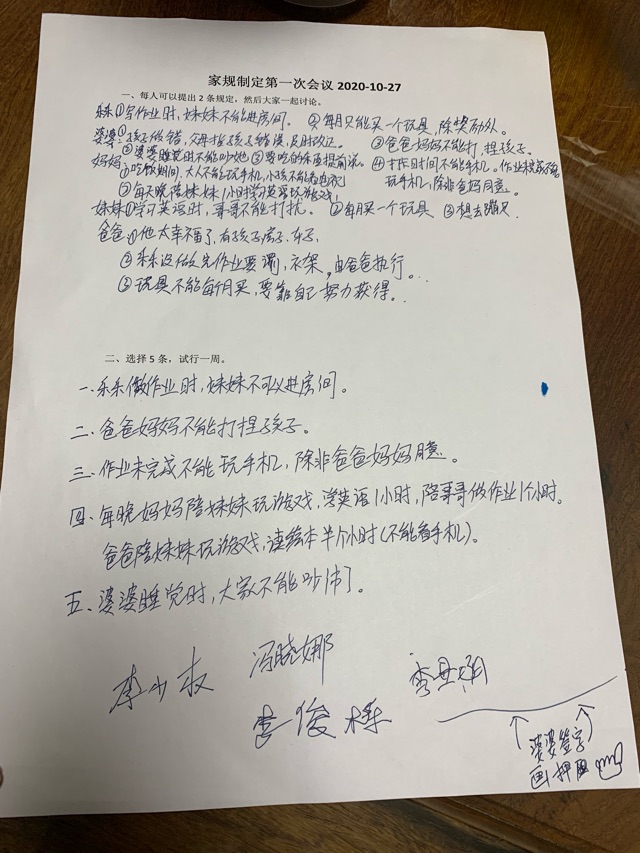 家规制定第一次会议 2020-10-27
一、每人可以提出2条规定，然后大家一起讨论。
乐乐①写作业时，妹妹不能进房间。②每月只能买一个玩具，除奖励外。
婆婆：①孩子做错，父母指孩子错误，及时改正。③爸爸妈妈不能打捏孩子。
②婆婆睡觉时不能吵她③要吃的东西提前说。④打床时间不能手机。作业未完成不能
妈妈：①吃饭期间，大人不能玩手机，小孩不能看电视 玩手机，除非爸妈同意。
②每天晚陪妹妹1小时学习英语玩游戏
妹妹①学习英语时，哥哥不能打扰。②每月买一个玩具 ③想去蹦只
爸爸①他太幸不富了，有孩子房子、车子，
②乐乐没做完作业要，衣架，由爸爸执行。
③玩具不能每个月买，要靠自己努力获得。
二、选择5条，试行一周。
一、乐乐做作业时，妹妹不可以进房间。
二、爸爸妈妈不能打捏孩子。
三、作业未完成不能玩手机，除非爸爸妈妈同意。
四、每晚妈妈陪妹妹玩游戏，学英语1小时，陪哥哥做作业1个小时。
爸爸陪妹妹玩游戏，读绘本半个小时（不能看手机）。
五、婆婆睡觉时，大家不能吵闹。
李小 冯晓娜
李俊栋
婆婆签字
画押